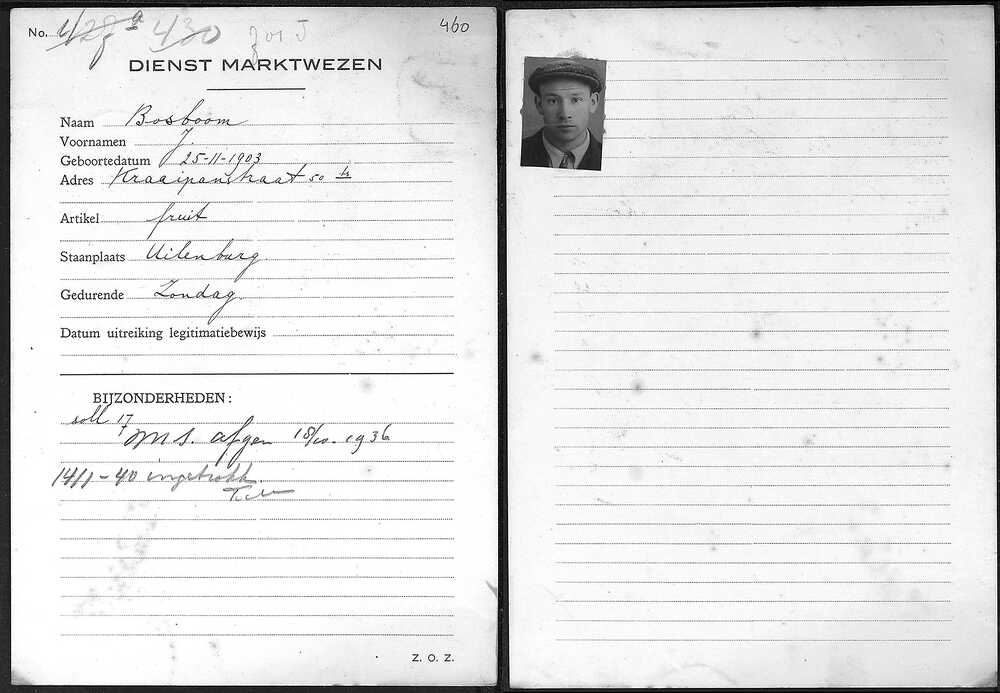 No. 430 460
DIENST MARKTWEZEN
Naam Bosboom
Voornamen J.
Geboortedatum 25-11-1903
Adres Kraaipanstraat 50 hs
Artikel fruit
Staanplaats Uilenburg
Gedurende Zondag.
Datum uitreiking legitimatiebewijs
BIJZONDERHEDEN:
soll 17
M S. afgen 18/10. 1936
14/1-40 ingetrokk.
Z. O. Z.